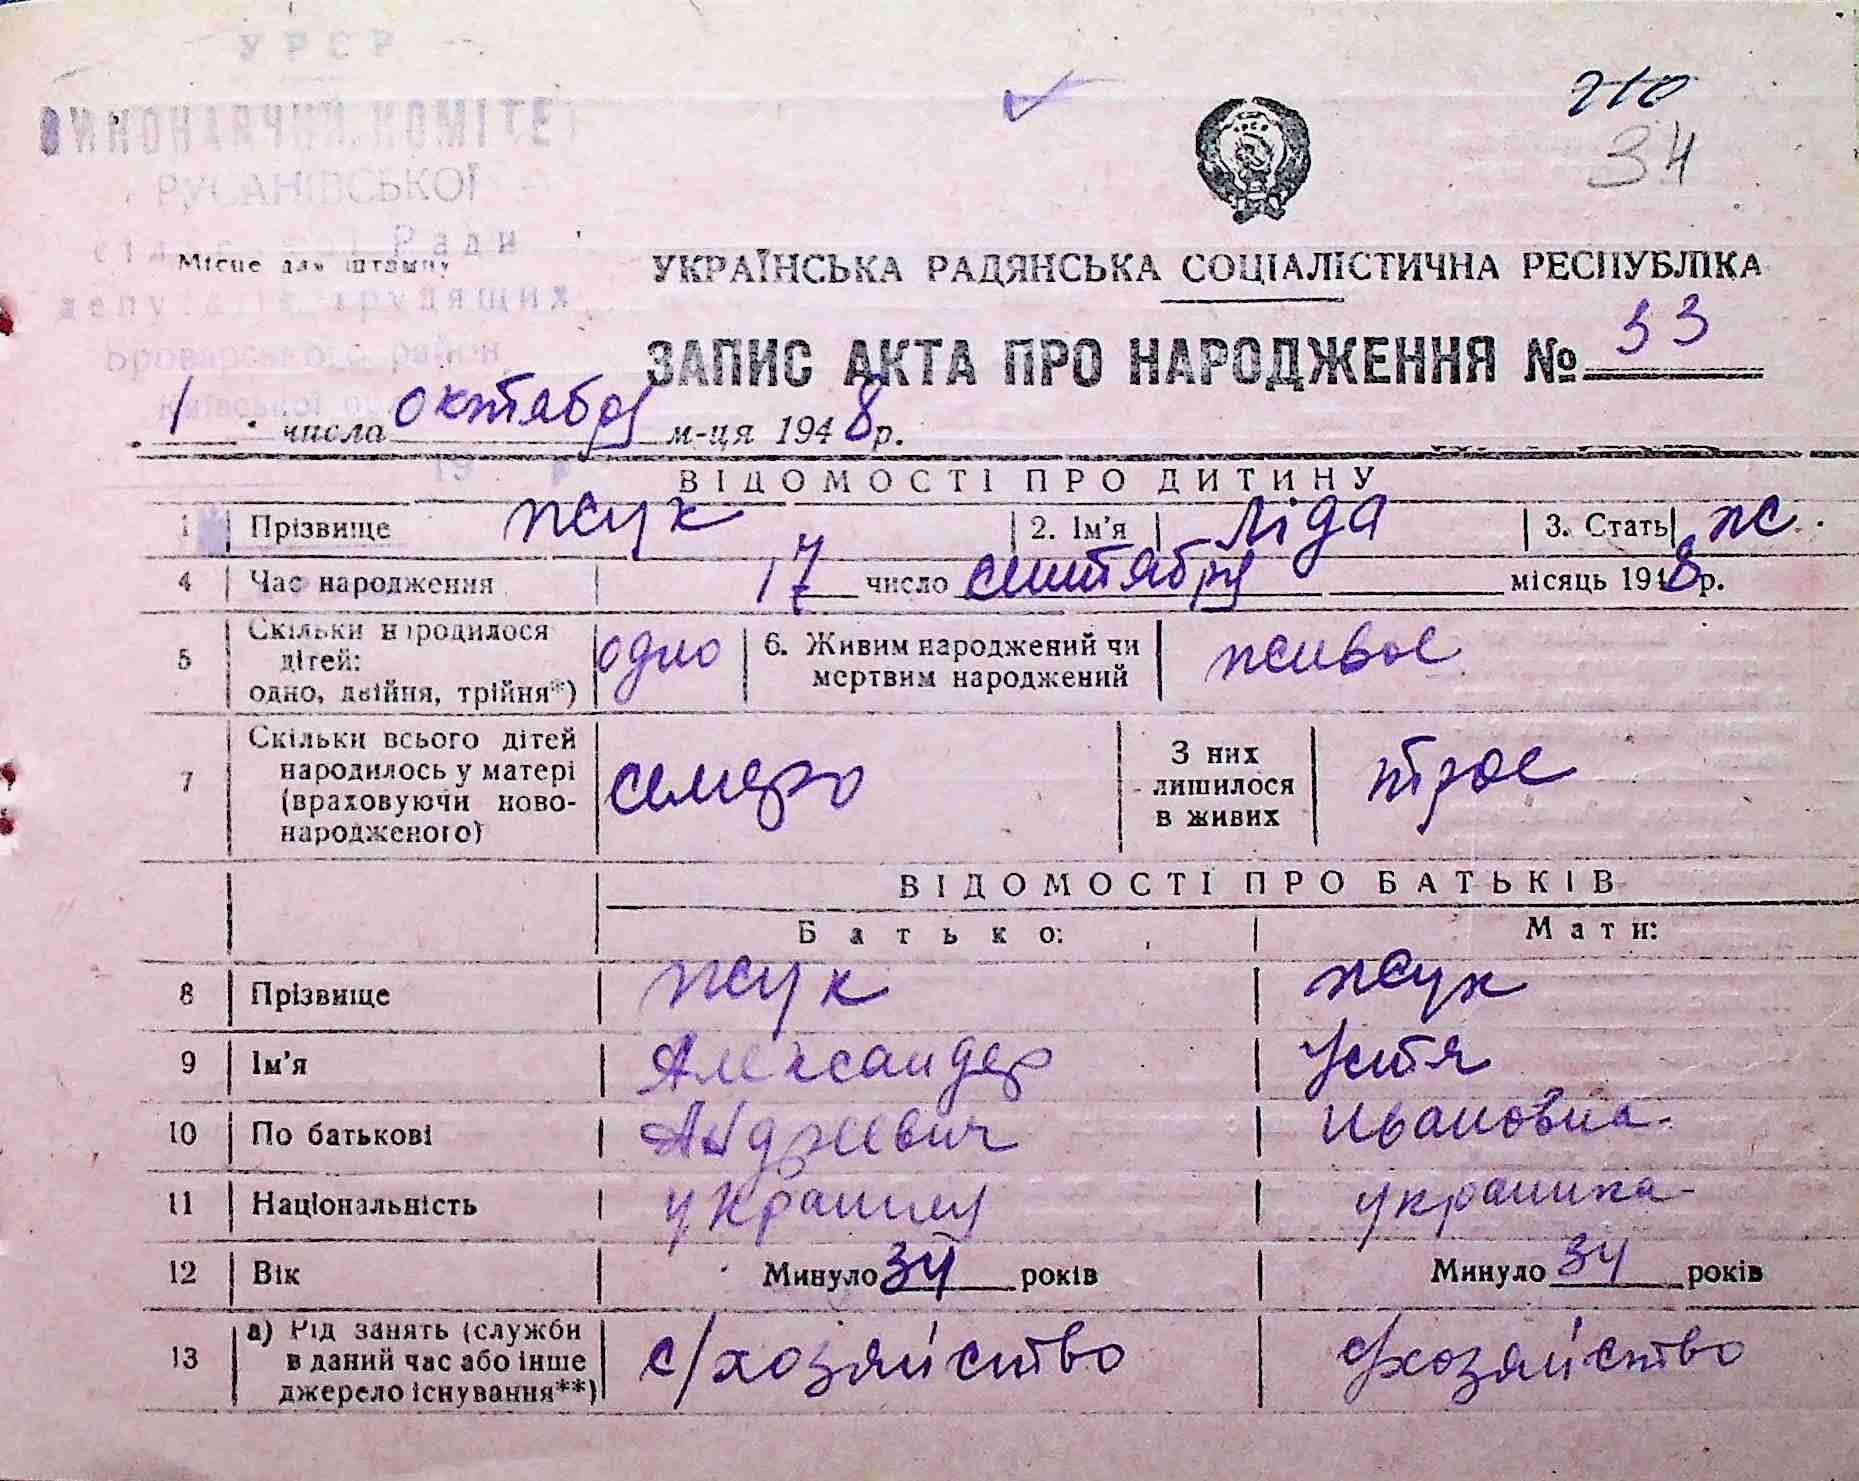 УРСР
ВИКОНАВЧИЙ КОМІТЕТ
РУСАНІВСЬКОЇ
сільської Ради
депутатів трудящих
Броварського району
Київської
Місце для штампу
210
34
УКРАЇНСЬКА РАДЯНСЬКА СОЦІАЛІСТИЧНА РЕСПУБЛІКА
ЗАПИС АКТА ПРО НАРОДЖЕННЯ № 33
1 числа октября м-ця 1948 р.
19 р
ВІДОМОСТІ ПРО ДИТИНУ
1 Прізвище Жук 2. Ім'я Ліда 3. Стать ж.
4 Час народження 17 число сентября місяць 1948 р.
5 Скільки народилося дітей: одно, двійня, трійня*) одно 6. Живим народжений чи мертвим народжений живое
7 Скільки всього дітей народилось у матері (враховуючи новонародженого) семеро З них лишилося в живих трое
ВІДОМОСТІ ПРО БАТЬКІВ
Батько: Мати:
8 Прізвище Жук Жук
9 Ім'я Александер Устя
10 По батькові Андреевич Ивановна
11 Національність украинец украинка
12 Вік Минуло 34 років Минуло 34 років
13 а) Рід занять (служби в даний час або інше джерело існування**) с/хозяйство с/хозяйство